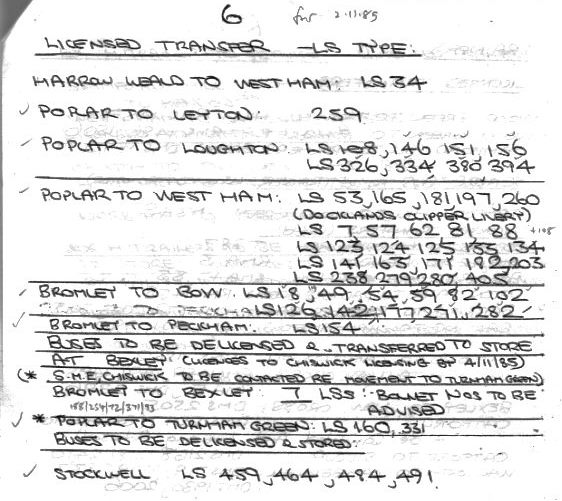 6 for 2.11.85
LICENSED TRANSFER - LS TYPE:
HARROW WEALD TO WEST HAM: LS 34
✓ POPLAR TO LEYTON: 259
✓ POPLAR TO LOUGHTON LS 108, 146 151, 156
LS 326, 334 380 394
✓ POPLAR TO WEST HAM: LS 53, 165, 181, 197, 260
(DOCKLANDS CLIPPER LIVERY)
LS 7, 57 62 81 88 +108
LS 123 124 125 133 134
LS 141 165, 171 182, 203
LS 238 279 280 405
✓ BROMLEY TO BOW: LS 18, 49, 54, 59 82, 102
LS 126, 142, 177 271, 282
✓ BROMLEY TO PECKHAM: LS 154
BUSES TO BE DELICENSED & TRANSFERRED TO STORE
AT BEXLEY (LICENCES TO CHISWICK LICENSING BY 4/11/85)
(* S.M.E, CHISWICK TO BE CONTACTED RE MOVEMENT TO TURNHAM GREEN)
BROMLEY TO BEXLEY: 7 LSs: BONNET NOS TO BE
ADVISED
✓ * POPLAR TO TURNHAM GREEN: LS 160, 331
BUSES TO BE DELICENSED & STORED:
✓ STOCKWELL LS 459, 464, 484, 491